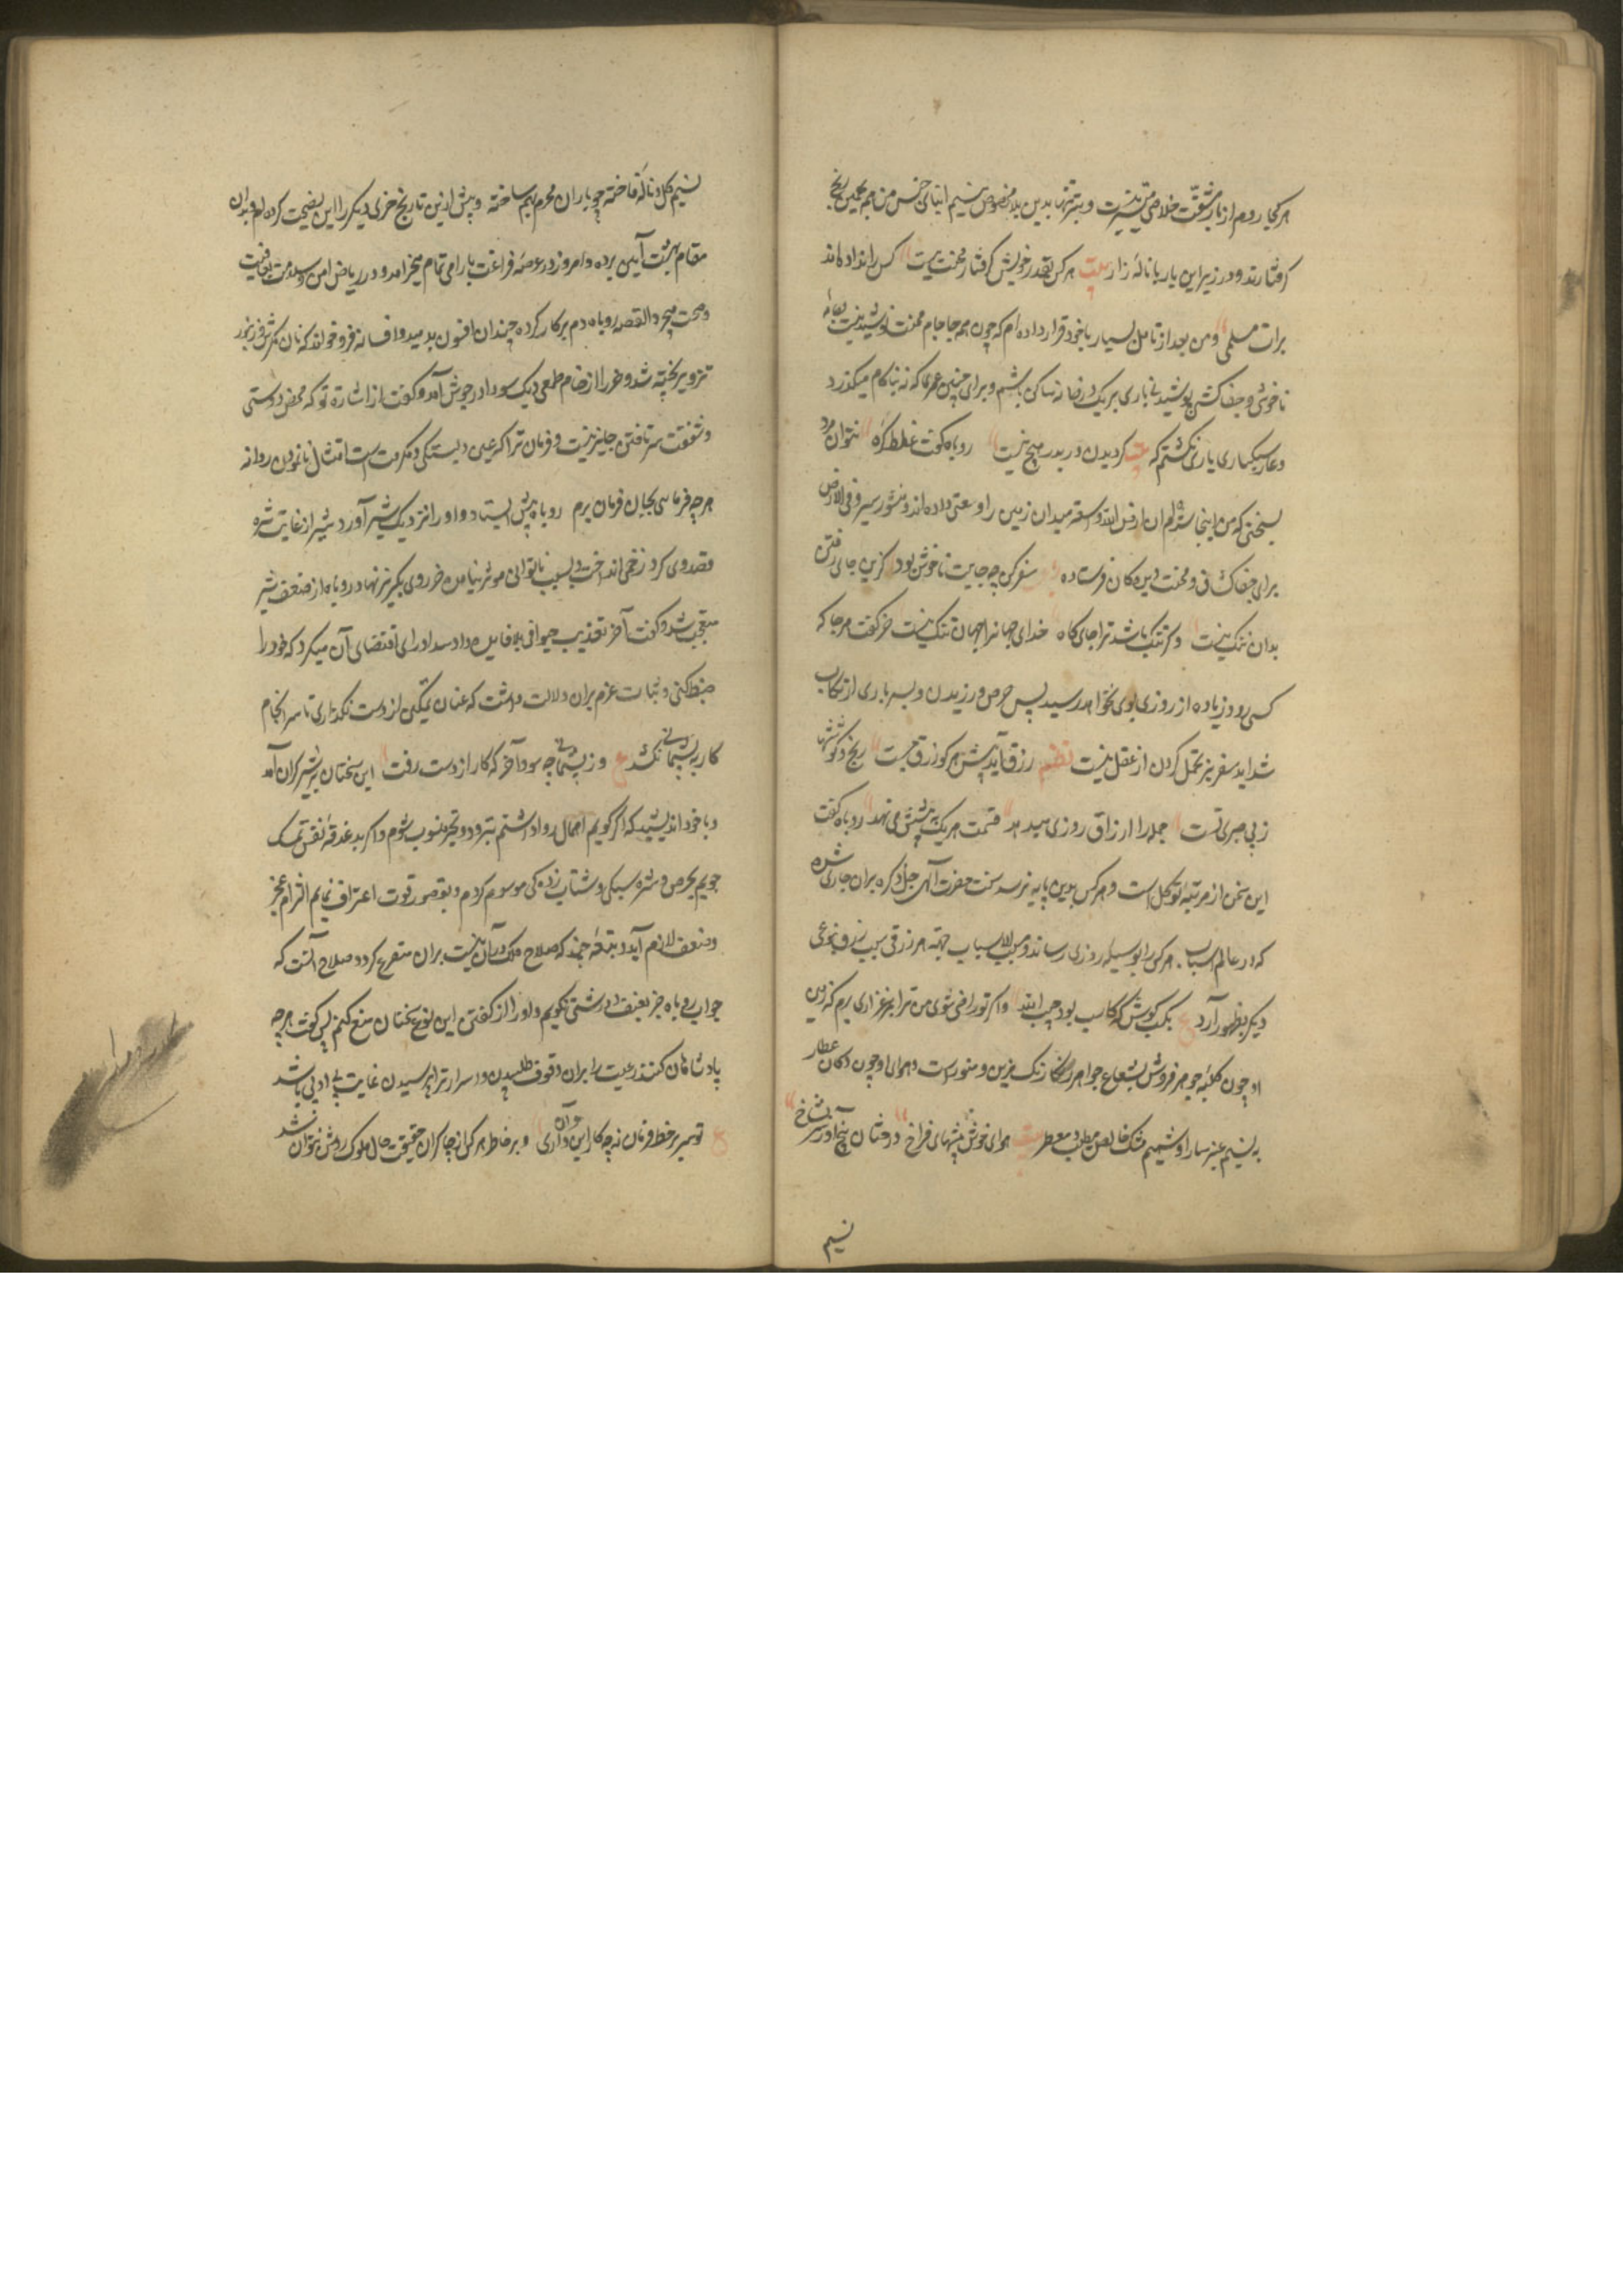 هر کجا روم از بار مشقت خلاصی متیسر نیست و نیز تنها بدین بلا مخصوص نیستم ابنای جنس من هم بهمین رنج
گرفتارند و در زیر این بار با نالهٔ زار بیت هر کس بقدر خویش گرفتار محنتیست کس را نداده اند
برات مسلمی و من بعد از تامل بسیار با خود قرار داده ام که چون همه جا جام محنت نوشیدنیست
ناخوشی و جفا کشی پوشیدنی باری بر یک در خانه ساکن باشم و برای چنین عمری که نه بکام میگذرد
و عار سبکساری باری نکشم که بیت گردیدن در بدر هیچ نیست روباه گفت غلط کرده نتوان مرد
بسختی که من اینجا زادم ان ارض الله واسعة میدان زمین را وسعتی داده اند و منشور سیروا فی الارض
برای جفا کشان و محنت دیدگان فرستاده سفر کن چو جایت ناخوش بود کزین جای رفتن
بدان ننگ نیست و گر تنگ باشد ترا جایگاه خدای جهانرا جهان تنگ نیست خر گفت هر جا که
کسی رود زیاده از روزی بوی نخواهد رسید پس حرص ورزیدن و بسر باری ارتکاب
شداید سفر نیز تحمل کردن از عقل نیست نظم رزق آید پیش هر کو رزق جست رنج و کوششها
ز بی صبری تست جمله را رزاق روزی میدهد قسمت هر یک به پیشش می نهد روباه گفت
این سخن از مرتبهٔ توکل است و هر کس بدین پایه نرسد سنت حضرت الهی جل ذکره بران جاری شده
که در عالم اسباب هر کس را بوسیله روزی رساند و مسبب الاسباب جهة هر رزقی سببی بنوعی
دیگر بظهور آرد ع بکسب کوش که کاسب بود حبیب الله و اگر تو راضی شوی من ترا بمرغزاری برم که زمین
او چون کلبهٔ جوهر فروش بشعاع جواهر رنگارنگ مزین و منور است و هوای او چون دکان عطار
به نسیم عنبر سارا و شمیم مشک خالص مطیب و معطر بیت هوای خوش بیشهای فراخ درختان بیخ آور سبز شاخ
نسیم
نسیم گل و نالهٔ فاخته چو یاران محرم بهم ساخته و پیش ازین تاریخ خری دیگر را این نصیحت کرده ام و بدان
مقام بهشت آیین برده و امروز در عرصهٔ فراغت بارامی تمام میخرامد و در ریاض امن و سلامت بعافیت
و صحت میچرد القصه روباه دم برکار کرده چندان افسون بدمید و افسانه فرو خواند که نان مکرش در تنور
تزویر پخته شد و خر را از خام طمعی دیک سودا در جوش آمد و گفت از اشارت تو که محض دوستی
و شفقت سر تافتن جایز نیست و فرمان ترا که عین دلبستگی و مکرمت است امتثال نانمودن روا نه
هر چه فرمایی بجان فرمان برم روباه پیش ایستاد و او را نزدیک شیر آورد شیر از غایت شره
قصد وی کرد زخمی انداخت و بسبب ناتوانی موثر نیامد خر روی بگریز نهاد و روباه از ضعف شیر
متعجب شد و گفت آخر تعذیب حیوانی بلا فایده داد سداد رای اقتضای آن میکرد که خود را
ضبط کنی و ثبات عزم بران دلالت داشت که عنان تمکین از دست نگذاری تا سرانجام
کار به پشیمانی نکشد ع وز پشیمانی چه سود آخر که کار از دست رفت این سخنان بر شیر گران آمد
و با خود اندیشید که اگر گویم اهمال روا داشتم بتردد و تحیر منسوب شوم و اگر بدغدغهٔ نفس تمسک
جویم بحرص و شره سبکی و شتاب زدگی موسوم گردم و بقصور قوت اعتراف نمایم التزام عجز
و ضعف لازم آید و نتیجهٔ چند که صلاح ملک در آن نیست بران متفرع گردد صلاح آنست که
جواب روباه جز بعنف و درشتی نگویم و او را از گفتن این نوع سخنان منع کنم پس گفت هر چه
پادشاهان کنند رعیت را بران وقوف طلبیدن و در اسرار ترا پرسیدن غایت بی ادبی باشد
ع تو سر بر خط فرمان نه چه کار این و آن داری و بر خاطر هر کس از چاکران حقیقت حال ملوک روشن نتوان شد